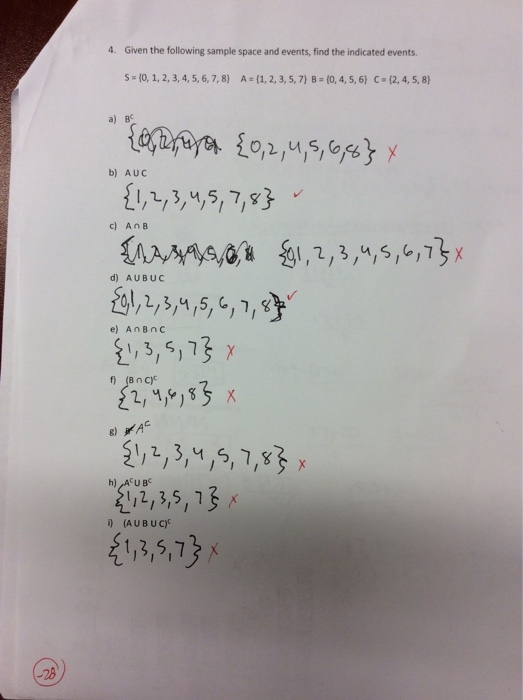 4. Given the following sample space and events, find the indicated events.
S = {0, 1, 2, 3, 4, 5, 6, 7, 8} A = {1, 2, 3, 5, 7} B = {0, 4, 5, 6} C = {2, 4, 5, 8}
a) Bᶜ
{0,2,4,5,6,8} x
b) A U C
{1,2,3,4,5,7,8} ✓
c) A ∩ B
{0,1,2,3,4,5,6,7} x
d) A U B U C
{0,1,2,3,4,5,6,7,8} ✓
e) A ∩ B ∩ C
{1,3,5,7} x
f) (B ∩ C)ᶜ
{2,4,6,8} x
g) Aᶜ
{1,2,3,4,5,7,8} x
h) Aᶜ U Bᶜ
{1,2,3,5,7} x
i) (A U B U C)ᶜ
{1,3,5,7} x
-28